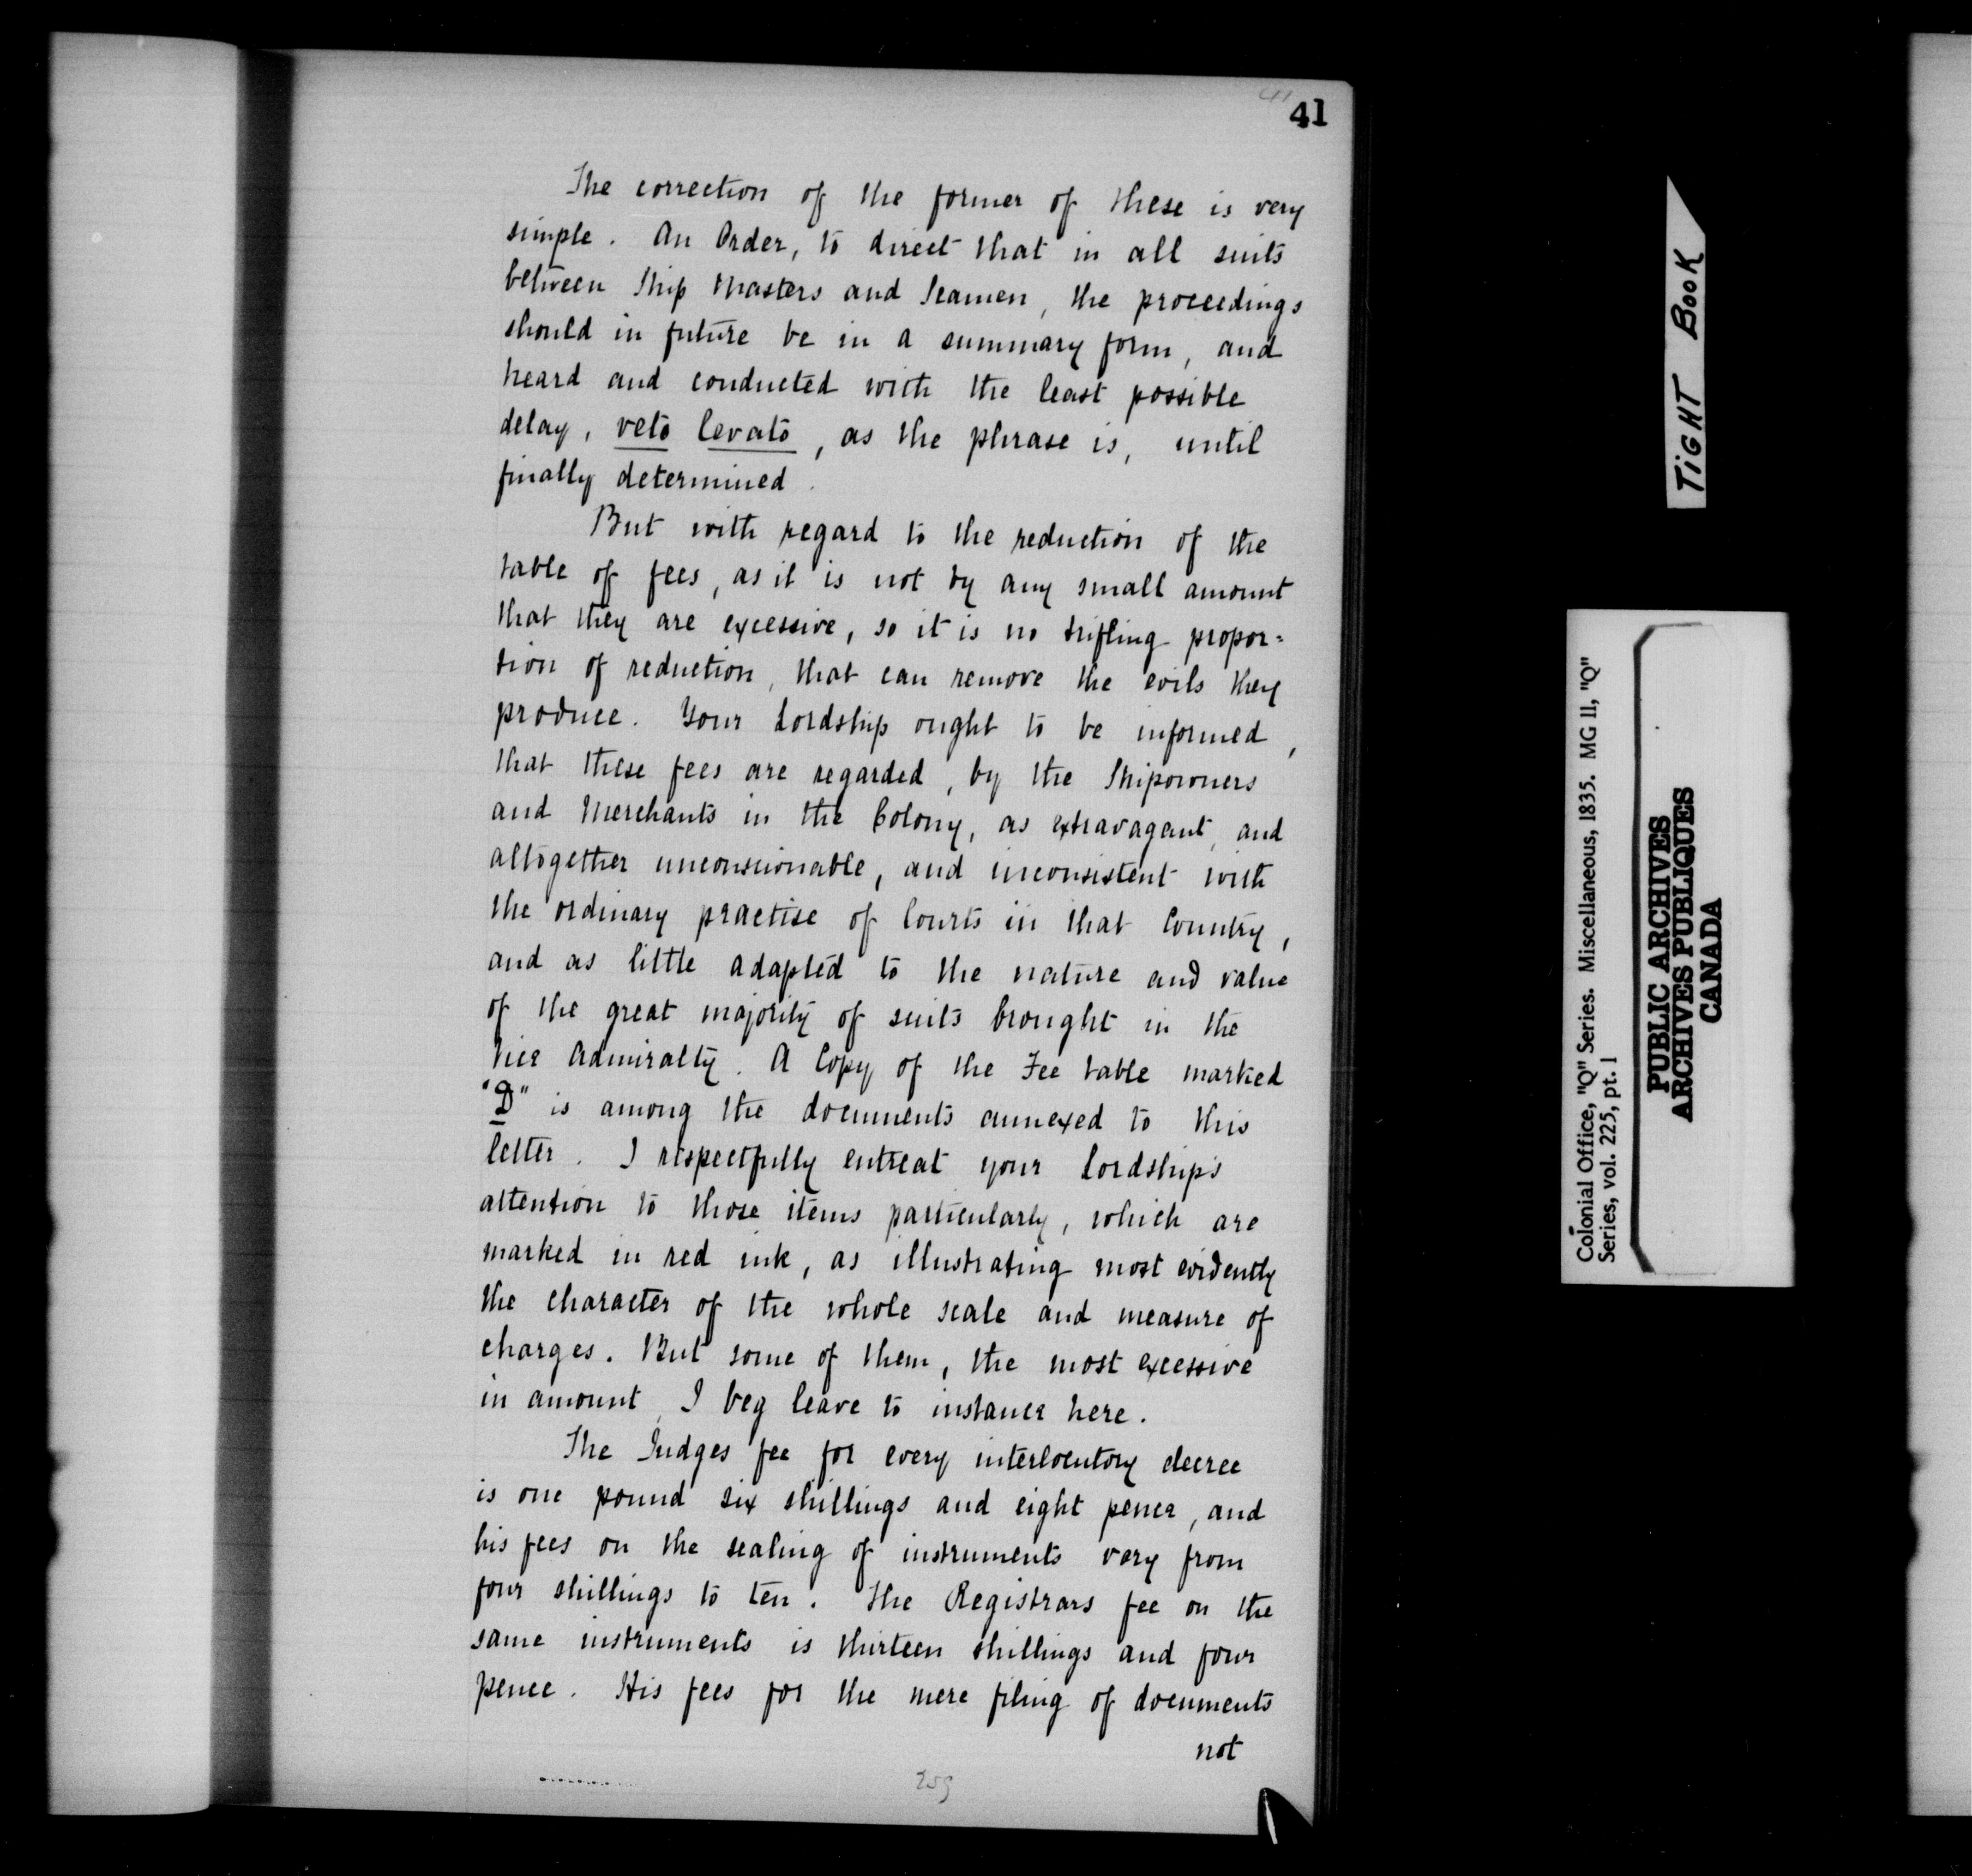 41
The correction of the former of these is very
simple. An Order, to direct that in all suits
between Ship Masters and Seamen, the proceedings
should in future be in a summary form, and
heard and conducted with the least possible
delay, velo levato, as the phrase is, until
finally determined.
But with regard to the reduction of the
table of fees, as it is not by any small amount
that they are excessive, so it is no trifling propor=
tion of reduction, that can remove the evils they
produce. Your Lordship ought to be informed,
that these fees are regarded, by the Shipowners
and Merchants in the Colony, as extravagant, and
altogether unconscionable, and inconsistent with
the ordinary practise of Courts in that Country,
and as little adapted to the nature and value
of the great majority of suits brought in the
Vice Admiralty. A Copy of the Fee table marked
"D" is among the documents annexed to this
letter. I respectfully entreat your Lordship's
attention to those items particularly, which are
marked in red ink, as illustrating most evidently
the character of the whole scale and measure of
charges. But some of them, the most excessive
in amount, I beg leave to instance here.
The Judges fee for every interlocutory decree
is one pound six shillings and eight pence, and
his fees on the sealing of instruments vary from
four shillings to ten. The Registrars fee on the
same instruments is thirteen shillings and four
pence. His fees for the mere filing of documents
not
TIGHT BOOK
Colonial Office, "Q" Series. Miscellaneous, 1835. MG 11, "Q"
Series, vol. 225, pt. 1
PUBLIC ARCHIVES
ARCHIVES PUBLIQUES
CANADA